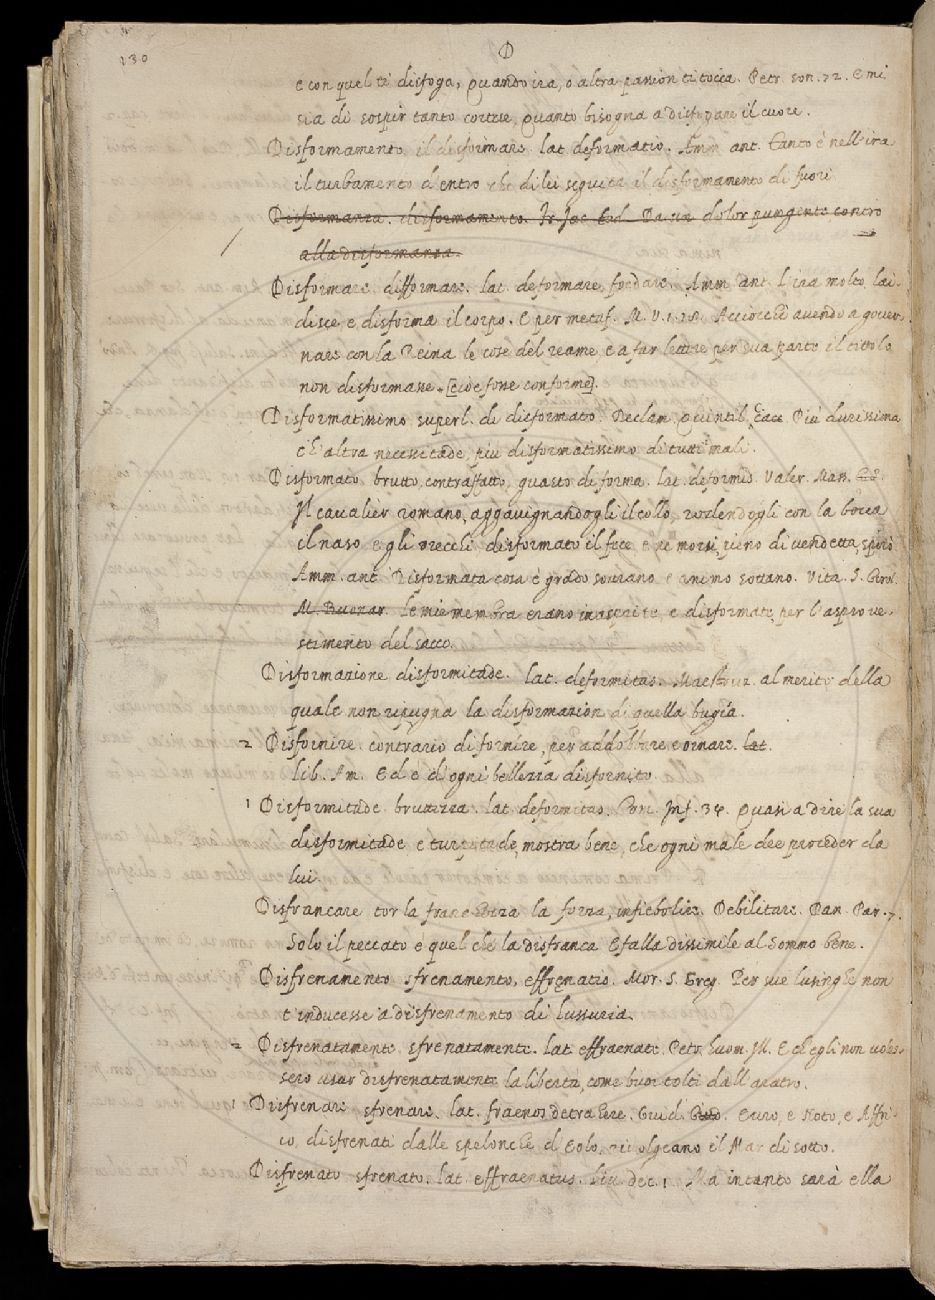 130
D
e con quel ti disfoga, quando ira, o altra passion ti tocca. Petr. son. 72. E mi
sia di sospir tanto cortese, quanto bisogna a disfogare il cuore.
Disformamento, il disformare. lat. deformatio. Amm. ant. Tanto è nell'ira
il turbamento dentro che di lei seguita il disformamento di fuori
Disformanza. disformamento. Fr. Jac. Tod. Da sia dolor pungente contro
alla disformanza.
Disformare difformare. lat. deformare, foedare. Amm. ant. L'ira molto lai-
disce e disforma il corpo. E per metaf. M. V. 1. 28. Acciocchè avendo a gover-
nare con la Reina le cose del reame, e a far lettere per sua parte il titolo
non disformasse. [cioè fosse conforme].
Disformatissimo superl. di disformato. Declam. Quintil. Più durissima
ch'altra necessitade, più disformatissimo di tutti mali.
Disformato, brutto, contraffatto, guasto di forma. lat. deformis. Valer. Mass.
Il cavalier romano, aggavignandogli il collo, rodendogli con la bocca
il naso, e gli orecchi disformato il fece, e ne morsi, pieno di vendetta, spirò
Amm. ant. Disformata cosa è grado sovrano, e animo sottano. Vita. S. Girol.
M. Buonar. le mie membra erano inasprite, e disformate, per l'aspro ve-
stimento del sacco.
Disformazione disformitade. lat. deformitas. Maestruz. al merito della
quale non ripugna la disformazion di quella bugìa.
2 Disfornire contrario di fornire, per addobbare e ornare. lat.
lib. Am. Ed e' d'ogni bellezza disfornito.
1 Disformitade bruttezza. lat. deformitas. Com. Inf. 34. Quasi a dire la sua
disformitade, e turpitude, mostra bene, che ogni male dee proceder da
lui.
Disfrancare tor la franchezza la forza, infiebolire. Debilitare. Dan. Par. 7.
Solo il peccato è quel che la disfranca E falla dissimile al Sommo Bene.
Disfrenamento sfrenamento, effrenatio. Mor. S. Greg. Per sue lusinghe non
t'inducesse a disfrenamento di lussuria.
2 Disfrenatamente sfrenatamente. lat. effraenate. Petr. huom. ill. E ch'egli non voles-
sero usar disfrenatamente la libertà, come buoi tolti dall'aratro.
1 Disfrenare sfrenare. lat. fraenos detrahere. Guid. Giud. Euro, e Noto, e Affri-
co, disfrenati dalle spelonche d'Eolo, rivolgeano il Mar di sotto.
Disfrenato sfrenato. lat. effraenatus. Liv. dec. 1. Ma intanto sarà ella